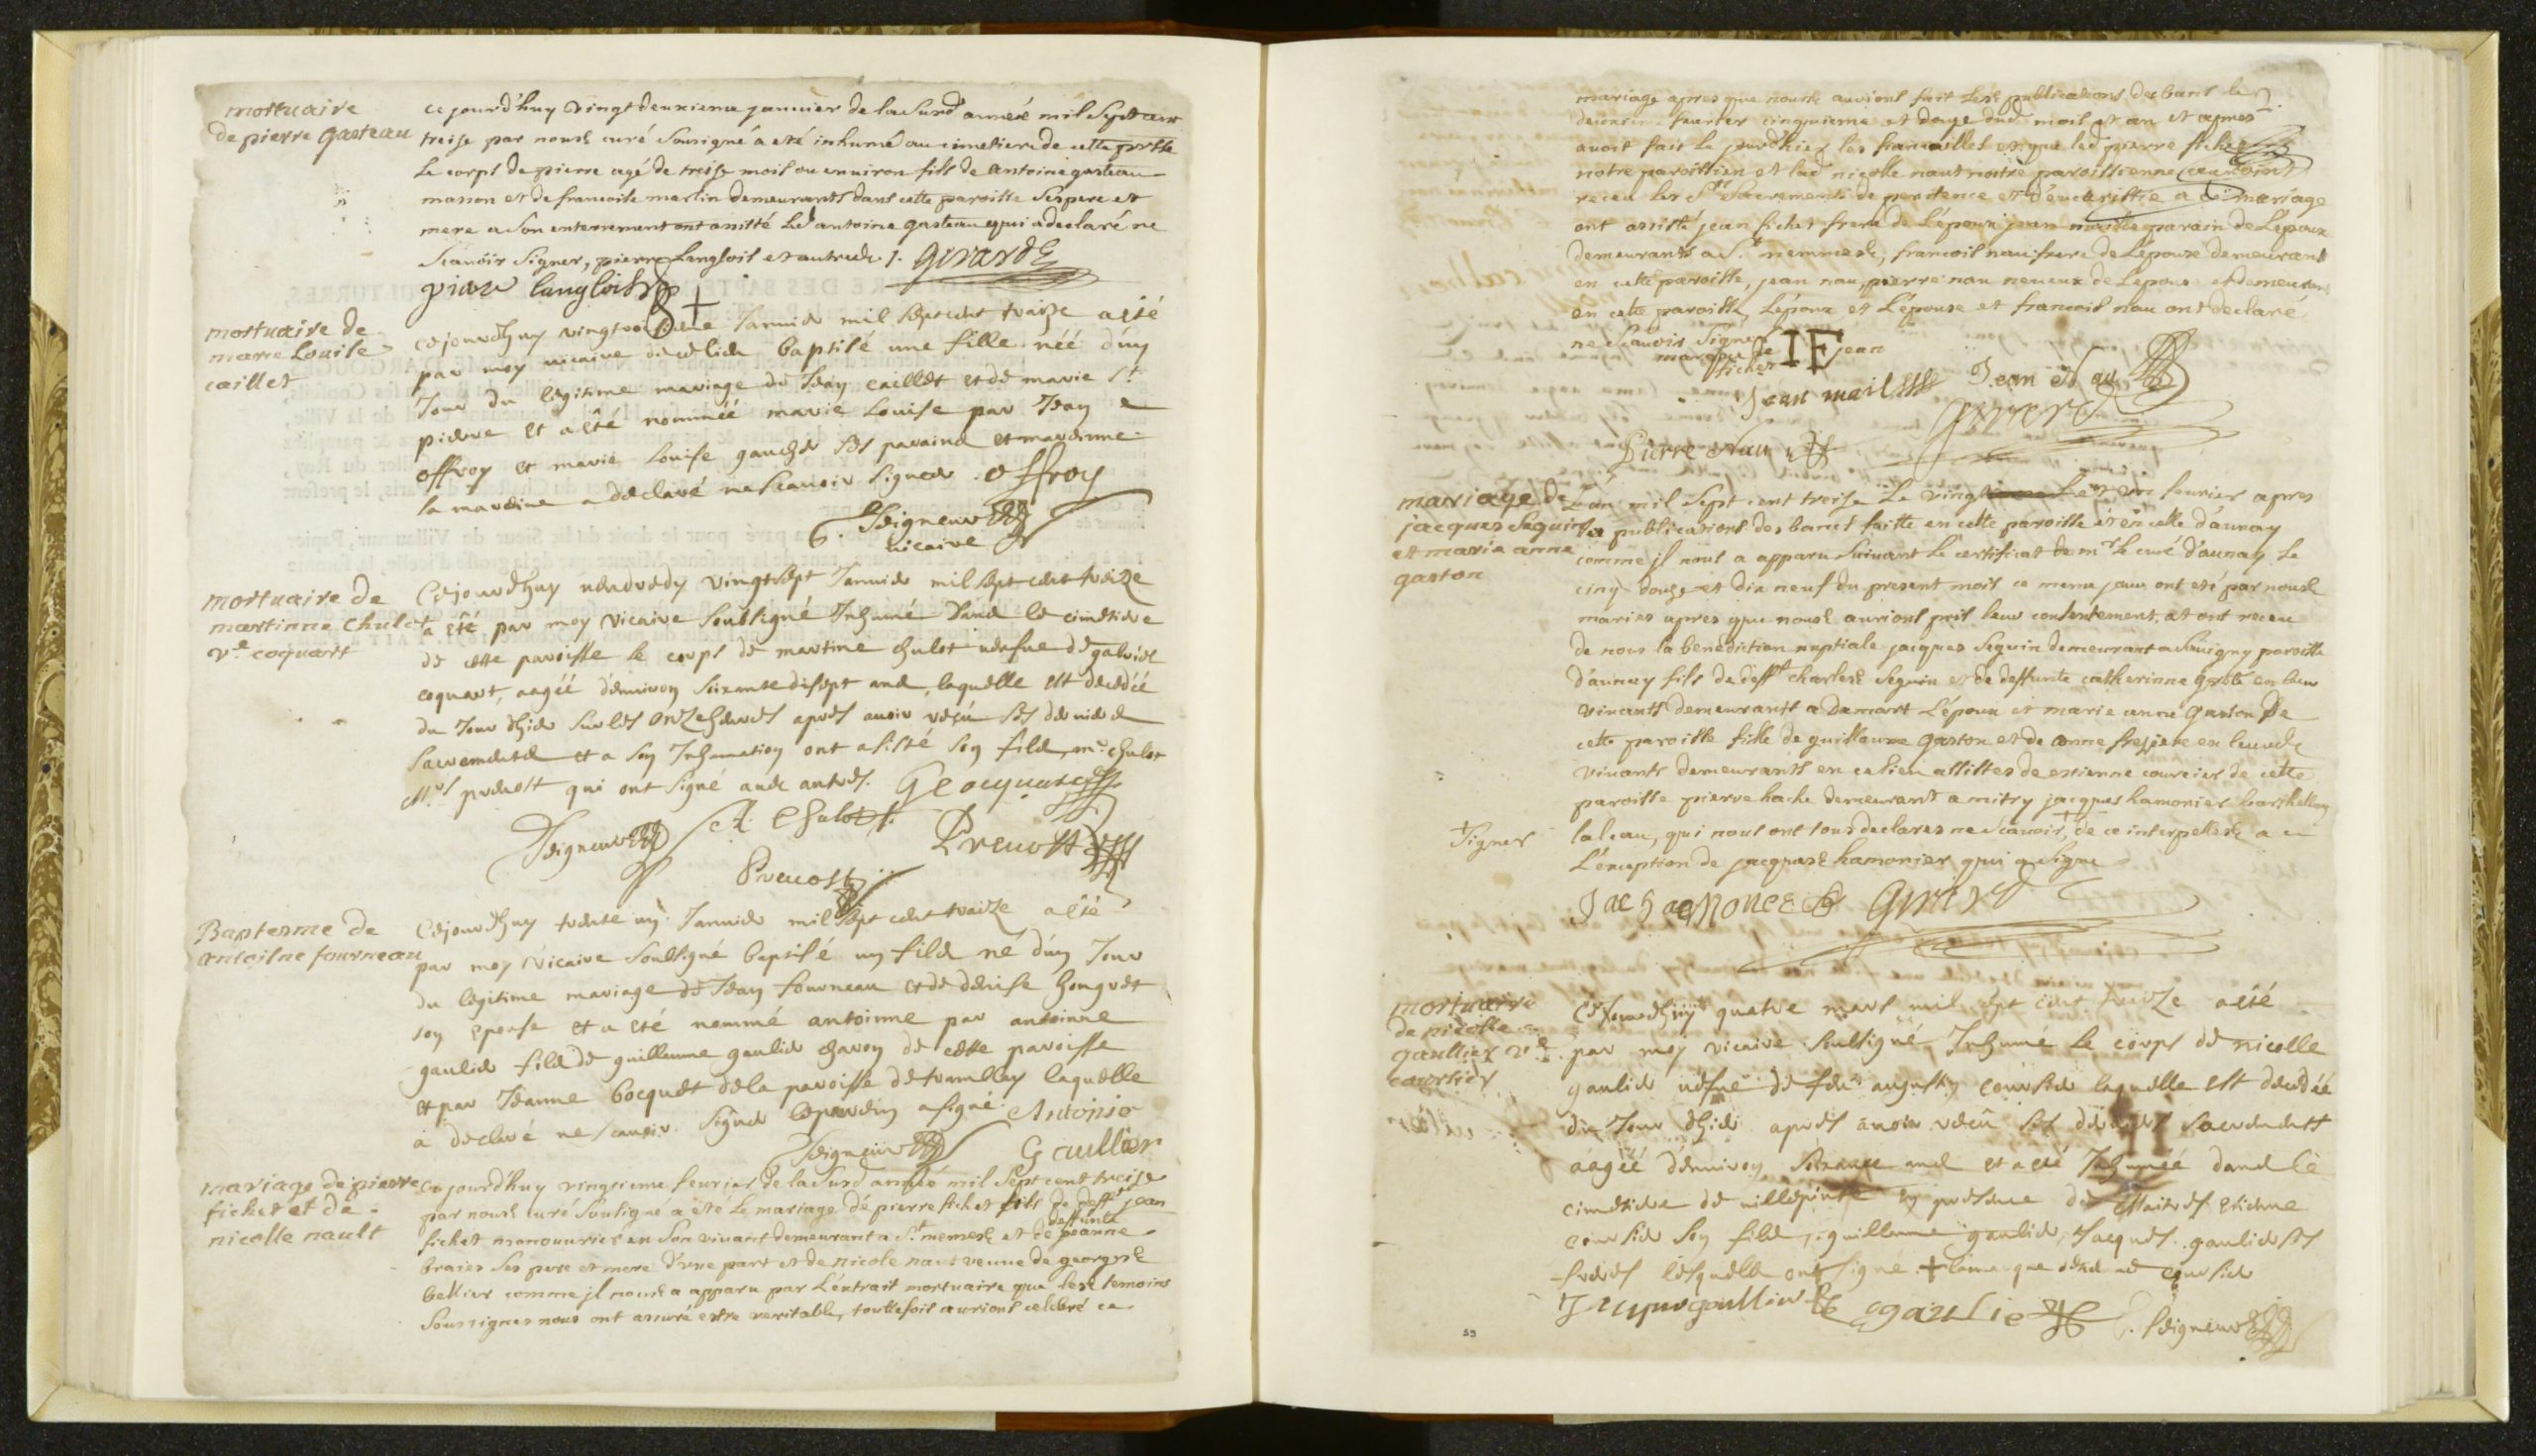 mortuaire
de pierre gasteau
ce jourd'huy vingt deuxieme januier de la surd année mil sept cent
treise par nous curé sousigné a eté inhumé au cimetiere de cette
le corps de pierre agé de treise mois ou enuiron fils de antoine gasteau
masson et de francoise martin demeurants dans cette paroisse ses pere et
mere a son enterrement ont assisté led antoine gasteau qui a declaré ne
scauoir signer, pierre Langlois et autres. Girard
piare langlois
mortuaire de
marie Louise
caillet
cejourdhuy vingt januier mil sept cent traize a eté
par moy vicaire de ce lieu baptisé une fille néé d'un
jour du legitime mariage de Jean caillet et de marie St
pierre et a eté nommée marie Louise par Jean
offroy et marie Louise gaucher ses paraine et mareinne
la mareine a declaré ne scauoir signer. offroy
G. Seigneur
uicaire
mortuaire de
martinne chulot
ve coquart
Cejourdhuy uendredy vingt sept Januier mil sept cent treize
a été par moy vicaire soubsigné Inhumé dans le cimetiere
de cette paroisse le corps de martine chulot uefue de gabriel
coquart, aagéé d'enuiron soixante disept ans, laquelle est decedéé
du Jour d'hier sur les onze heures apres auoir receu ses derniers
sacrements et a son Inhumation ont asisté son fils, mr. chulot
Mrs preuost qui ont signé auec autres. G cocquart
Seigneur A. Chulot
Preuost
Preuost
Baptesme de
antoine fourneau
Cejourdhuy trente un Januier mil sept cent traize a eté
par moy vicaire soubsigné baptisé un fils né d'un Jour
du legitime mariage de Jean fourneau et de denise hongret
son epouse et a eté nommé antoinne par antoinne
gaulier fils de guillaume gaulier charon de cette paroisse
et par Jeanne bocquet de la paroisse de tramblay laquelle
a declaré ne scauoir signer le parein a signé. Antoine
Seigneur Gaullier
mariage de pierre
fichet et de
nicolle nault
ce jourd'huy vingtieme feurier de la surd année mil sept cent treise
par nous curé sousigné a eté le mariage de pierre fichet fils de defft jean
deffunte
fichet manouurier en son viuant demeurant a St memes et de jeanne
braier ses pere et mere d'vne part et de nicole naut veuue de george
bellier comme jl nous a apparu par L'extrait mortuaire que les temoins
soussignes nous ont assuré estre veritable, touttefois aurions celebré ce
mariage apres que nous auions fait les publications des bans le
deuxieme feurier cinquieme et douze dud mois et an et apres
auoir fait le jourd'hier les fiancailles et que led pierre fichet
notre paroissien et lad nicolle naut notre paroissienne
receu les Sts Sacrements de penitence et d'eucaristie a ce mariage
ont assisté jean fichet frere de L'epoux jean maille parain de L'epoux
demeurants a St memmes, francois nau frere de L'epouse demeurant
en cette paroisse, jean nau, pierre nau neueux de L'epouse et demeurant
en cette paroisse, L'époux et L'épouse et francois nau ont declaré
ne scauoir signer
marque de IF jean
fichet
Jean mail Jean Nau
Girard
Pierre Nau
mariage de
jacques Seguin
et marie anne
gaston
L'an mil sept cent treise le vingt et un feurier apres
la publications des bancs faitte en cette paroisse et en celle d'aunay
comme jl nous a apparu suiuant le certificat de mr le curé d'aunay le
cinq douze et dix neuf du present mois ce meme jour ont eté par nous
maries apres que nous aurions pris leur contentement, et ont receu
de nous la benediction nuptiale jacques Seguin demeurant a Sauigny paroisse
d'aunay fils de defft charles Seguin et de deffunte catherinne en leur
viuants demeurants a Damart L'époux et marie anne gaston De
cette paroisse fille de guillaume gaston et de anne en leur
viuants demeurants en ce lieu assistes de estienne courcier de cette
paroisse pierre hache demeurant a mitry jacques hamonier barthelemy
laleau, qui nous ont tous declares ne scauoir + de ce interpelles a
L'exception de jacques hamonier qui a signé
+ signer
Girard
mortuaire
de nicolle
gaullier ve
courtier
Cejourdhuy quatre mars mil sept cent traize a eté
par moy vicaire soubsigné Inhumé le corps de nicolle
gaulier uefue de feu augustin coursier laquelle est decedéé
du Jour d'hier apres auoir receu ses derniers sacrements
aagéé d'enuiron soixante ans et a eté Inhuméé dans le
cimetiere de uillepinte en presence de Maitres etienne
coursier son fils, guillaume gaulier, Jacques gaulier ses
freres lesquels ont signé + la marque coursier
Jacques gaullier gaulier G. Seigneur